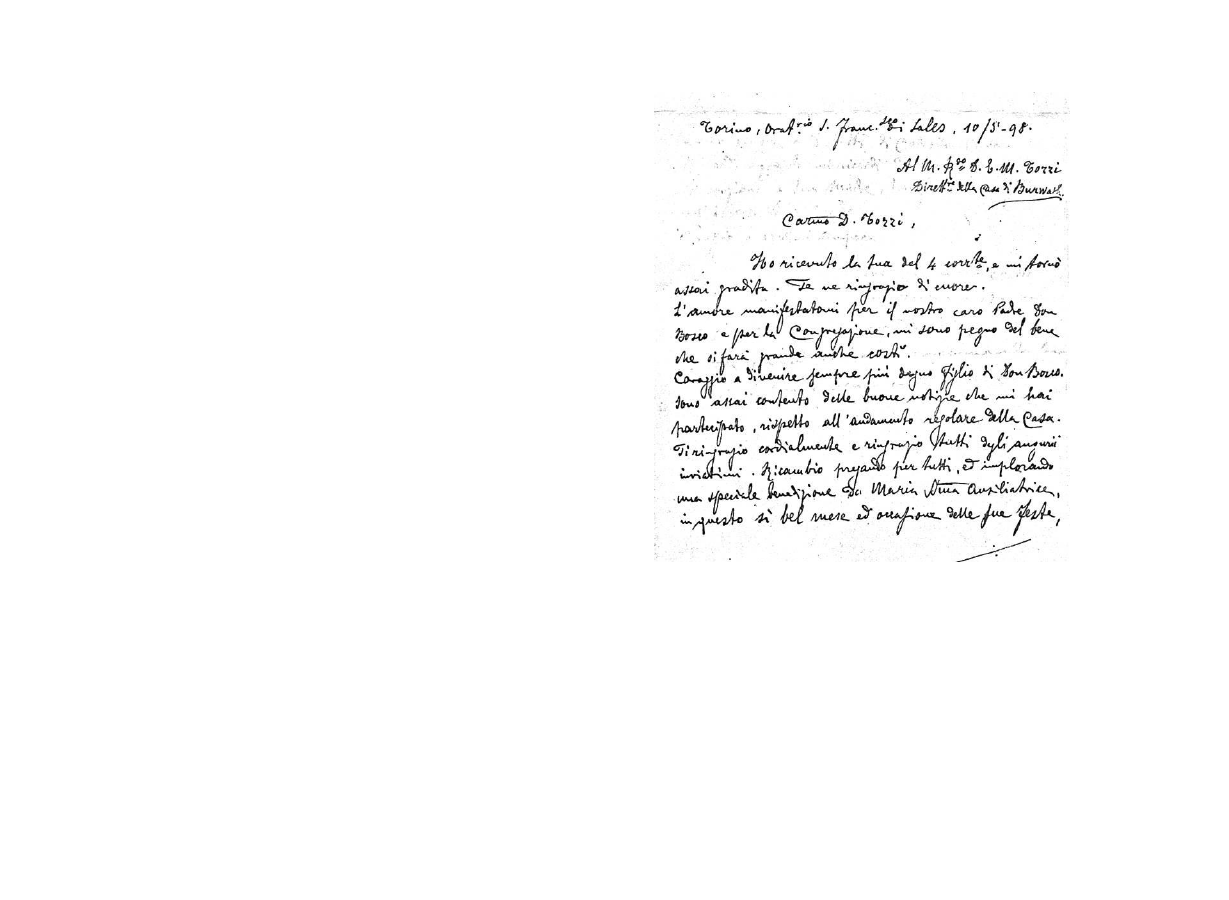 Torino, Orat.rio S. Franc.sco di Sales, 10/5-98.
Al M. Rdo D. E. M. Tozzi
Dirett.re della Casa di Burwash.
Carmo D. Tozzi,
Ho ricevuto la tua del 4 corrte, e mi tornò
assai gradita. Te ne ringrazio di cuore.
L'amore manifestatomi per il nostro caro Padre Don
Bosco e per la Congregazione, mi sono pegno del bene
che si farà grande anche costì.
Coraggio a divenire sempre più degno figlio di Don Bosco.
Sono assai contento delle buone notizie che mi hai
partecipato, rispetto all'andamento regolare della Casa.
Ti ringrazio cordialmente e ringrazio tutti degli augurii
inviatimi. Ricambio pregando per tutti, ed implorando
una speciale benedizione da Maria SSma Ausiliatrice,
in questo sì bel mese ed occasione delle sue feste,